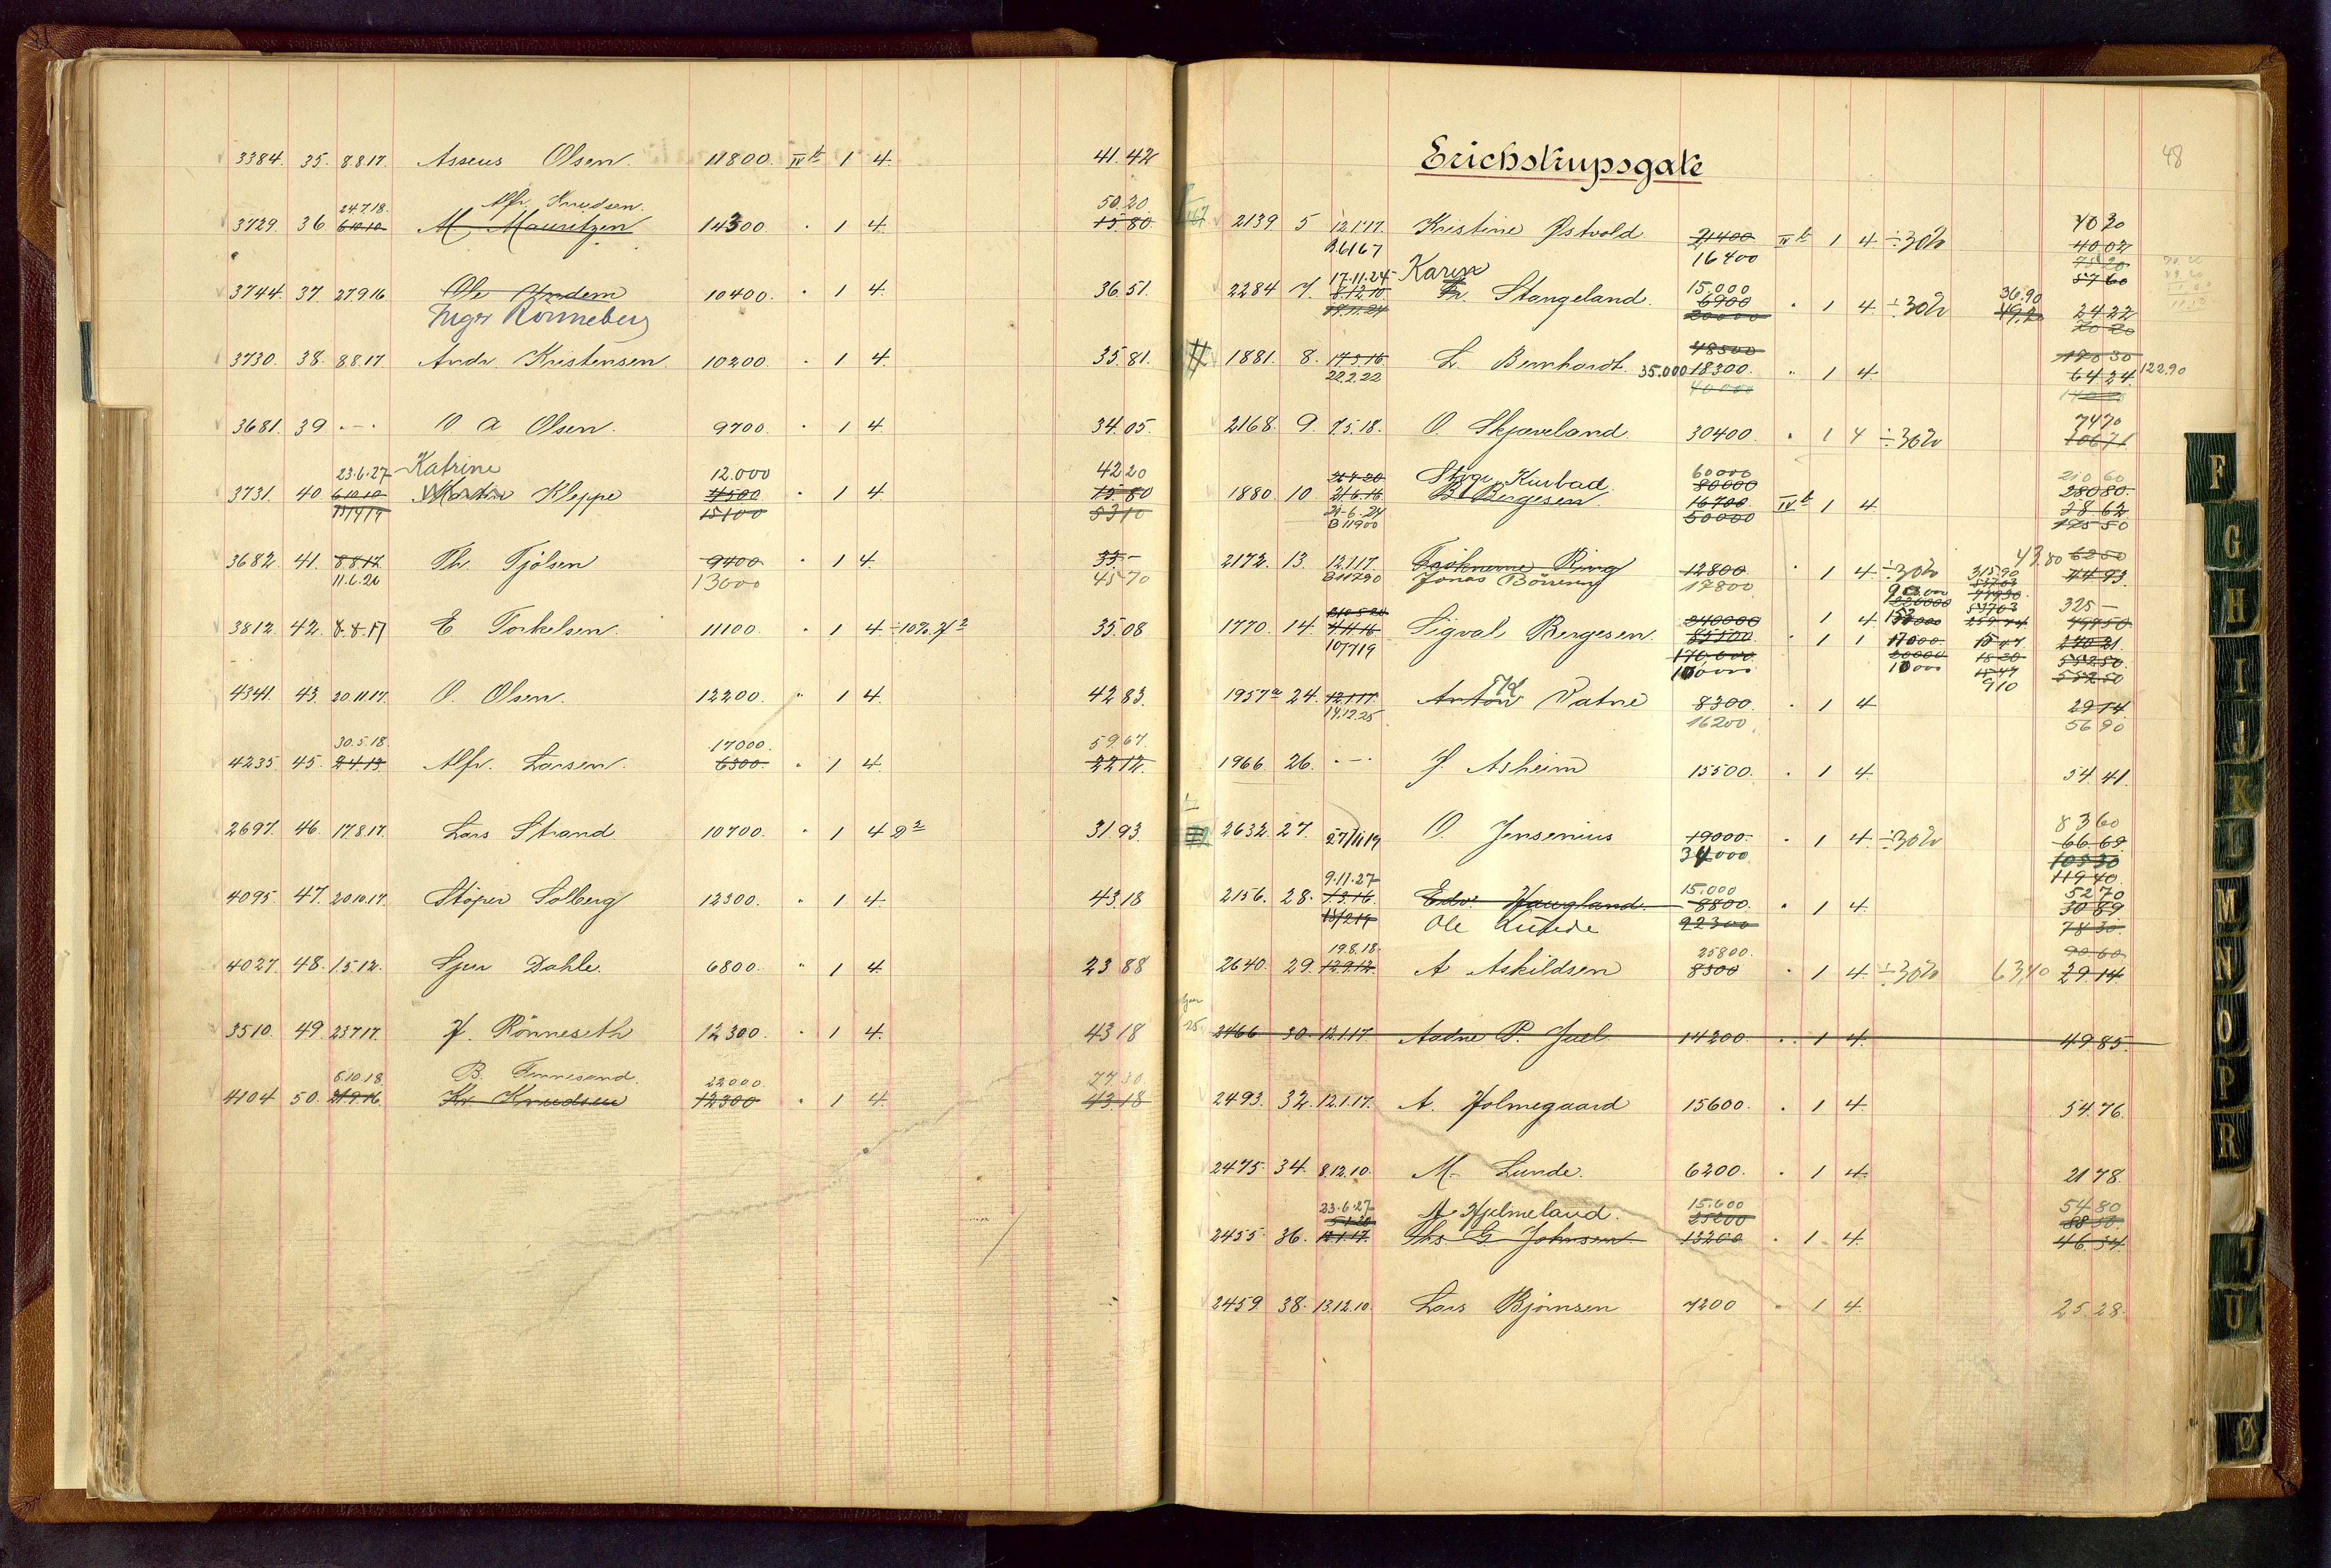 3384. 35. 8.8.17. Asseus Olsen. 11800. IV b 1 4. 41.42
24.7.18. Alfr. Knudsen. 50.20
3729. 36 6.10.10 M. Mauritzen 14300 " 1 4. 15.80
3744. 37 27.9.16 Ole Undem 10400. " 1 4. 36.51.
Inger Rönneberg
3730. 38. 8.8.17. Andr. Kristensen. 10200. " 1 4. 35.81.
3681. 39 . — . O A Olsen. 9700. " 1 4. 34.05.
23.6.27 Katrine 12.000 42 20
3731. 40. 6.10.10 Martin Kleppe 4500 " 1 4. 15.80
15/4 19 15100 53 10
3682. 41. 8.8.17 Th. Tjölsen 9400 " 1 4. 33.—
11.6.20 13000 45 70
3812. 42. 8.8.17 E Torkelsen. 11100. " 1 4 ÷10% 35.08
4341. 43. 20.11.17. O. Olsen. 12200. " 1 4. 42 83.
30.5.18. 17000. 59.67.
4235. 45. 2.4.13. Alfr. Larsen. 6300. " 1 4. 22 12.
2697. 46. 17.8.17. Lars Strand. 10700. " 1 4 31.93.
4095. 47. 20.10.17. Stöper Solberg 12300. " 1 4 43.18
4027. 48. 1.5.12. Sjur Dahle. 6800. " 1 4 23 88
3510. 49. 23.7.17. J. Rönneseth 12300. " 1 4. 43 18
8.10.18. B. Finnesand. 22000. 77.30.
4104 50. 21.9.16 Kr. Knudsen 12300 " 1 4. 43.18
48
Erichstrupsgate
2139 5 12.1.17. Kristine Østvold. 21400 IV b 1 4 ÷30% 70 30
B6167 16400 40 02
75 20
17.11.24 Karen 15.000 57 60
2284 7. 8.12.10 Fr. Stangeland. 6900 " 1 4 ÷30% 36.90 24 22
17.11.24 20000 49.20 70 20
48500 170 30
1881. 8. 14.5.16 L. Bernhardt. 35.000 18300. " 1 4. 64 24. 122.90
22.2.22 40000 140 20
2168. 9. 7.5.18. O. Skjæveland. 30400. " 1 4 ÷30% 74 70
106 71
60000 210 60
Stvgr Kurbad. 80000 280 80.
1880. 10. 21.6.16 B. Bergesen. 16700. IV b 1 4 58 62
21-6-24 50000 175 50
B 11900
2172. 13. 12.1.17. Frøknerne Ring 12800 " 1 4 ÷30% 43.80 62 50
B11790 Jonas Börresen 17800 44 93.
240000 325 —
1770. 14. 4.11.16 Sigval Bergesen. 85500 " 1 4
10/7 19 170.000
100000 910
1957a 24. 12.1.17. Anton Vatne 8300. " 1 4 29 14
14.12.25 16200. 56 90
1966. 26. . — . J. Asheim 15500. " 1 4. 54.41.
2632. 27. 27/11 19 O. Jensenius 19000. " 1 4 ÷30% 83 60
34000 66.69
105 30
9.11.27 15.000 119 40.
2156. 28. 1.5.16. Edv. Haugland. 8800. " 1 4. 52 70
15/2 19 Ole 22300 30 89
78 30.
19.8.18. 25800. 90 60
2640. 29. 12.9.12. A Askildsen 8300 " 1 4 ÷30% 63,40 29.14
2466 30. 12.1.17. Aadne P. Juel 14200. " 1 4. 49 85.
2493. 32. 12.1.17. A. Holmegaard 15600. " 1 4. 54.76.
2475. 34. 8.12.10. M. Lunde. 6200. " 1 4. 21 78.
23.6.27 A. Hjelmeland. 15.600 54 80
5.1.20 25200 88 50.
2455. 36. 12.1.17. Ths. G. Johnsen. 13200 " 1 4. 46.34.
2459 38. 13.12.10. Lars Bjørnsen 7200 " 1 4. 25.28.
F
G
H
I
J
K
M
N
O
P
R
U
Ø